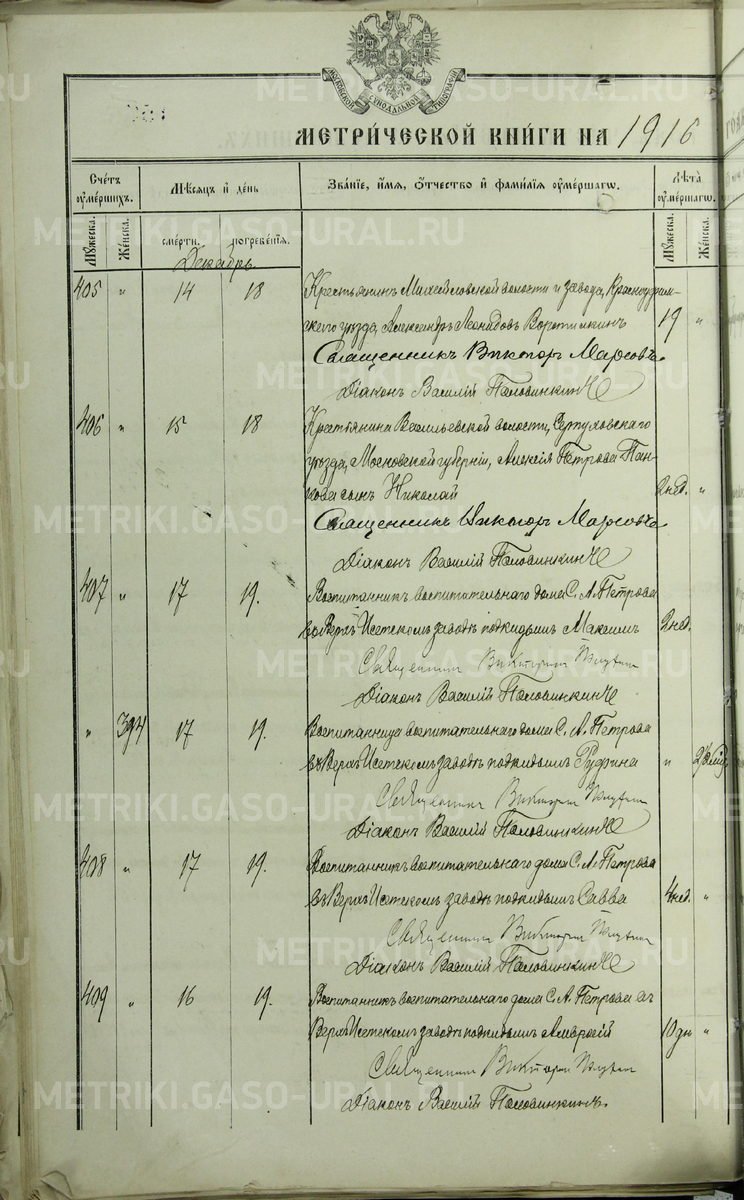 МОСКОВСКОЙ СѴНОДАЛЬНОЙ ТИПОГРАФІИ
МЕТРИ́ЧЕСКОЙ КНИ́ГИ НА 1916
Сче́тъ ᲂу҆ме́ршихъ.
Мѣ́сяцъ и҆ де́нь
Зва́нїе, и҆́мя, ѻ҆́тчество и҆ фами́лїя ᲂу҆ме́ршагѡ.
Лѣ́та ᲂу҆ме́ршагѡ.
Мꙋ́жеска. Же́нска. сме́рти. погребе́нїя. Мꙋ́жеска. Же́нска.
Декабрь
405 " 14 18 Крестьянинъ Михайловской волости и завода, Красноуфим-
скаго уѣзда, Александръ Леонидовъ 19 "
Священникъ Викторъ
Діаконъ Василій Половинкинъ
406 " 15 18 Крестьянина Васильевской волости, Серпуховскаго
уѣзда, Московской губерніи, Алексія Петрова Пан-
кова сынъ Николай 2 нед. "
Священникъ Викторъ
Діаконъ Василій Половинкинъ
407 " 17 19. Воспитанникъ воспитательнаго дома С. А. Петрова
въ Верхъ Исетскомъ заводѣ подкидышъ Максимъ 2 нед.
Священникъ
Діаконъ Василій Половинкинъ
" 394 17 19. Воспитанница воспитательнаго дома С. А. Петрова
въ Верхъ Исетскомъ заводѣ подкидышъ Руфина "
Священникъ
Діаконъ Василій Половинкинъ
408 " 17 19. Воспитанникъ воспитательнаго дома С. А. Петрова
въ Верхъ Исетскомъ заводѣ подкидышъ Савва 4 нед. "
Священникъ
Діаконъ Василій Половинкинъ
409 " 16 19. Воспитанникъ воспитательнаго дома С. А. Петрова въ
Верхъ Исетскомъ заводѣ подкидышъ Амвросій 10 дн "
Священникъ
Діаконъ Василій Половинкинъ.
METRIKI.GASO-URAL.RU